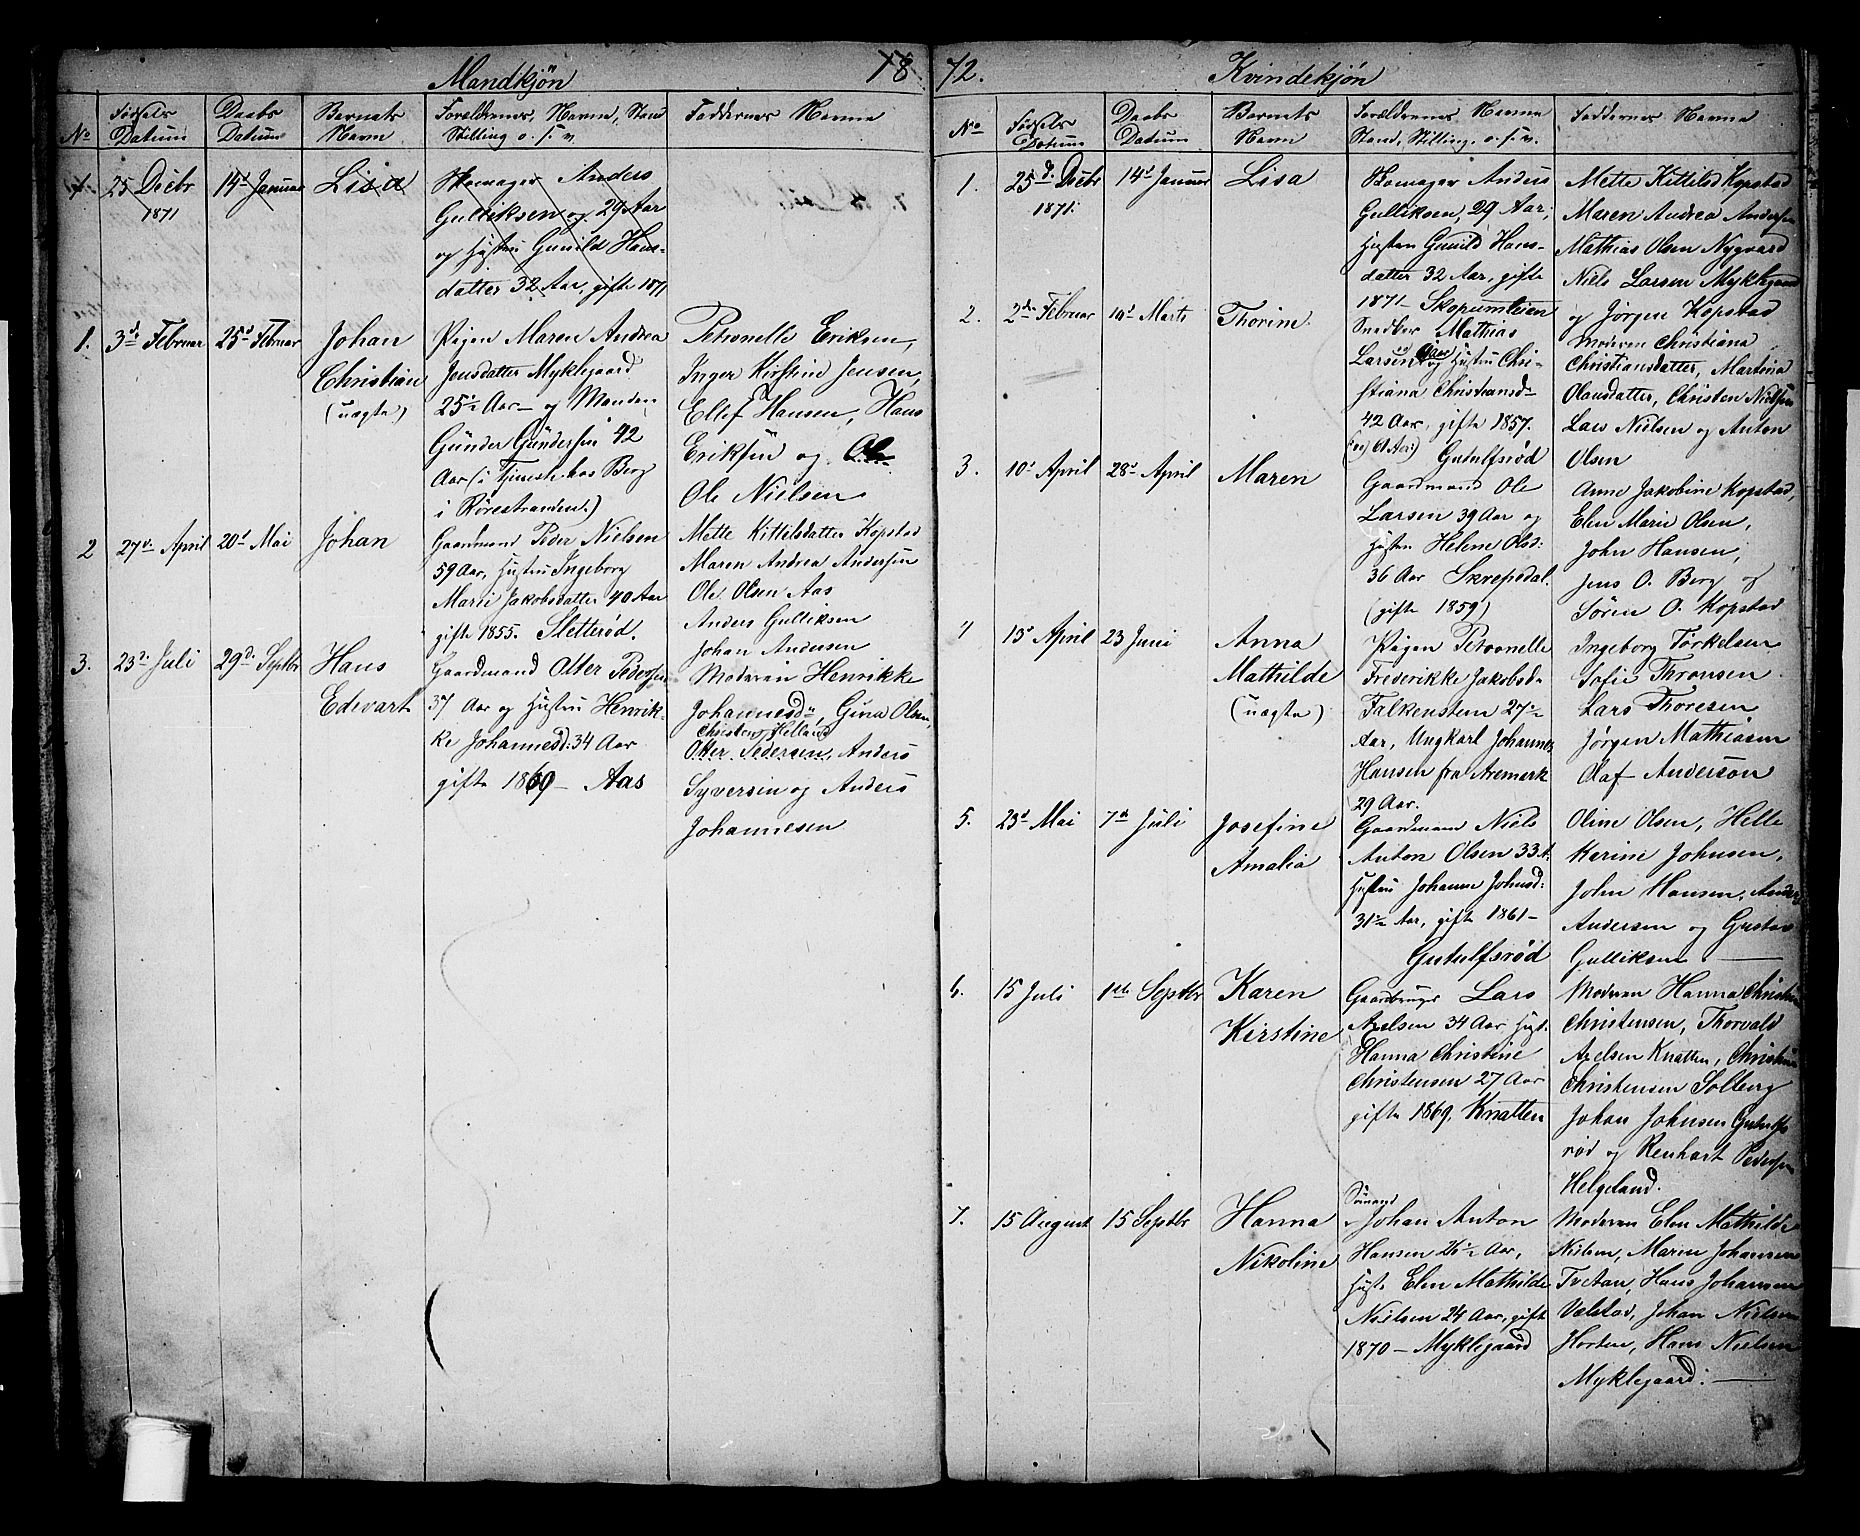 Mandkjøn
18
No
Fødsels
Datum
Daabs
Datum
Barnets
Navn
Forældrenes, Navne, Stand
Stilling o. s. v.
Faddernes Navne
1. 25 Decbr 14d Januar Lisa
1871
Skomager Anders
Gulliksen og 29 Aar
og Hustru Gunild Hans-
datter 32 Aar, gifte 1871
1. 3d Februar 25d Februar Johan
Christian
(uægte)
Pigen Maren Andrea
Jensdatter Myklegaard
25½ Aar og Manden
Gunder Gundersen 42
Aar (i Tjeneste hos Berg
i Rørestranden.)
Petronelle Eriksen,
Inger Kirstine Jensen,
Ellef Hansen, Hans
Eriksen og Ole
Ole Nielsen
2 27de April 20d Mai Johan
Gaardmand Peder Nielsen
59 Aar, Hustru Ingeborg
Marie Jakobsdatter 40 Aar
gifte 1855. Sletterød.
Mette Kittilsdatter Kopstad
Maren Andrea Andersen
Ole Olsen Aas
Anders Gulliksen
Johan Andersen
3. 23d Juli 29d. Septbr Hans
Edevart
Gaardmand Otter Pedersen
37 Aar og Hustru Henrik-
ke Johannesd: 34 Aar
gifte 1869 – Aas
Moderen Henrikke
Johannesdtr, Gina Olsen,
Christen Helland
Otter Pedersen, Anders
Syversen og Anders
Johannesen
72.
Kvindekjøn
No
Fødsels
Datum
Daabs
Datum
Barnets
Navn
Forældrenes Navne
Stand, Stilling, o. s. v.
Faddernes Navne
1. 25d. Decbr 14d Januar Lisa
1871.
Skomager Anders
Gulliksen, 29 Aar,
Hustru Gunild Hans-
datter 32 Aar, gifte
1871 – Skopumleien
Mette Kittilsd Kopstad
Maren Andrea Andersen
Mathias Olsen Nygaard
Niels Larsen Myklegaard
og Jørgen Kopstad
2. 2den Februar 10d Marts Thorine
Snedker Mathias
Larsen og Hustru Chri-
stiana Christiansd-
42 Aar, gifte 1857.
(61 Aar) Gutulfsrød
Moderen Christiana
Christiansdatter, Martina
Olausdatter, Christen Nielsen
Lars Nielsen og Anton
Olsen
3. 10d April 28d April Maren
Gaardmand Ole
Larsen 39 Aar og
Hustru Helene Olsd:
36 Aar Skrepsdal.
(gifte 1859)
Anne Jakobine Kopstad,
Elen Marie Olsen,
John Hansen,
Jens O. Berg og
Søren O. Kopstad
4 15d April 23 Juni Anna
Mathilde
(uægte)
Pigen Petronelle
Frederikke Jakobsd
Falkensten 27½
Aar, Ungkarl Johannes
Hansen fra Aremark
29 Aar.
Ingeborg Torkelsen
Sofie Thronsen
Lars Thoresen
Jørgen Mathiasen
Olaf Anderson
5. 23d Mai 7de Juli Josefine
Amalia
Gaardmand Niels
Anton Olsen 33 A.
Hustru Johanne Johnsd:
31½ Aar, gifte 1861 –
Gutulfsrød
Oline Olsen, Helle
Karine Johnsen,
John Hansen, Anders
Andersen og Gustav
Gulliksen
6. 15 Juli 1ste Septbr Karen
Kirstine
Gaardbruger Lars
Axelsen 34 Aar, Hust.
Hanna Christine
Christensen 27 Aar
gifte 1869. Knatten
Moderen Hanna Christine
Christensen, Thorvald
Axelsen Knatten, Christian
Christensen Solberg
Johan Johnsen Gutulfs
rød og Renhart Pedersen
Helgeland.
7. 15 August 15 Septbr Hanna
Nikoline
Sømand
Johan Anton
Hansen 26½ Aar,
Hust. Elen Mathilde
Nielsen 24 Aar, gift
1870 – Myklegaard
Moderen Elen Mathilde
Nielsen, Maren Johansen
Tvetan, Hans Johansen
Vælstad, Johan Nielsen
Horten, Hans Nielsen
Myklegaard.